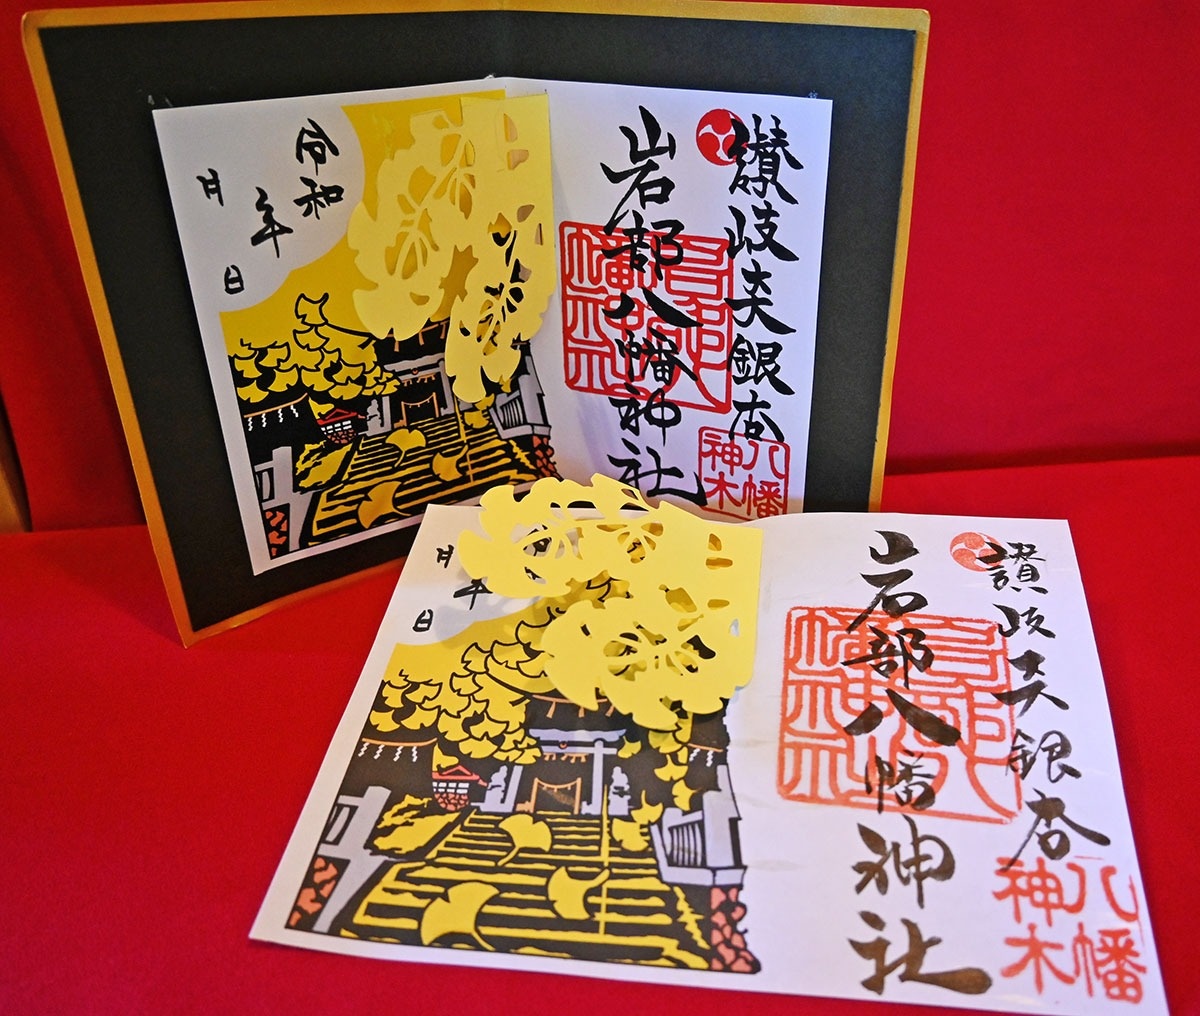 讃岐銀杏
岩部八幡神社
八幡
神木
令和
年
月
日
讃岐銀杏
岩部八幡神社
八幡
神木
年
月
日